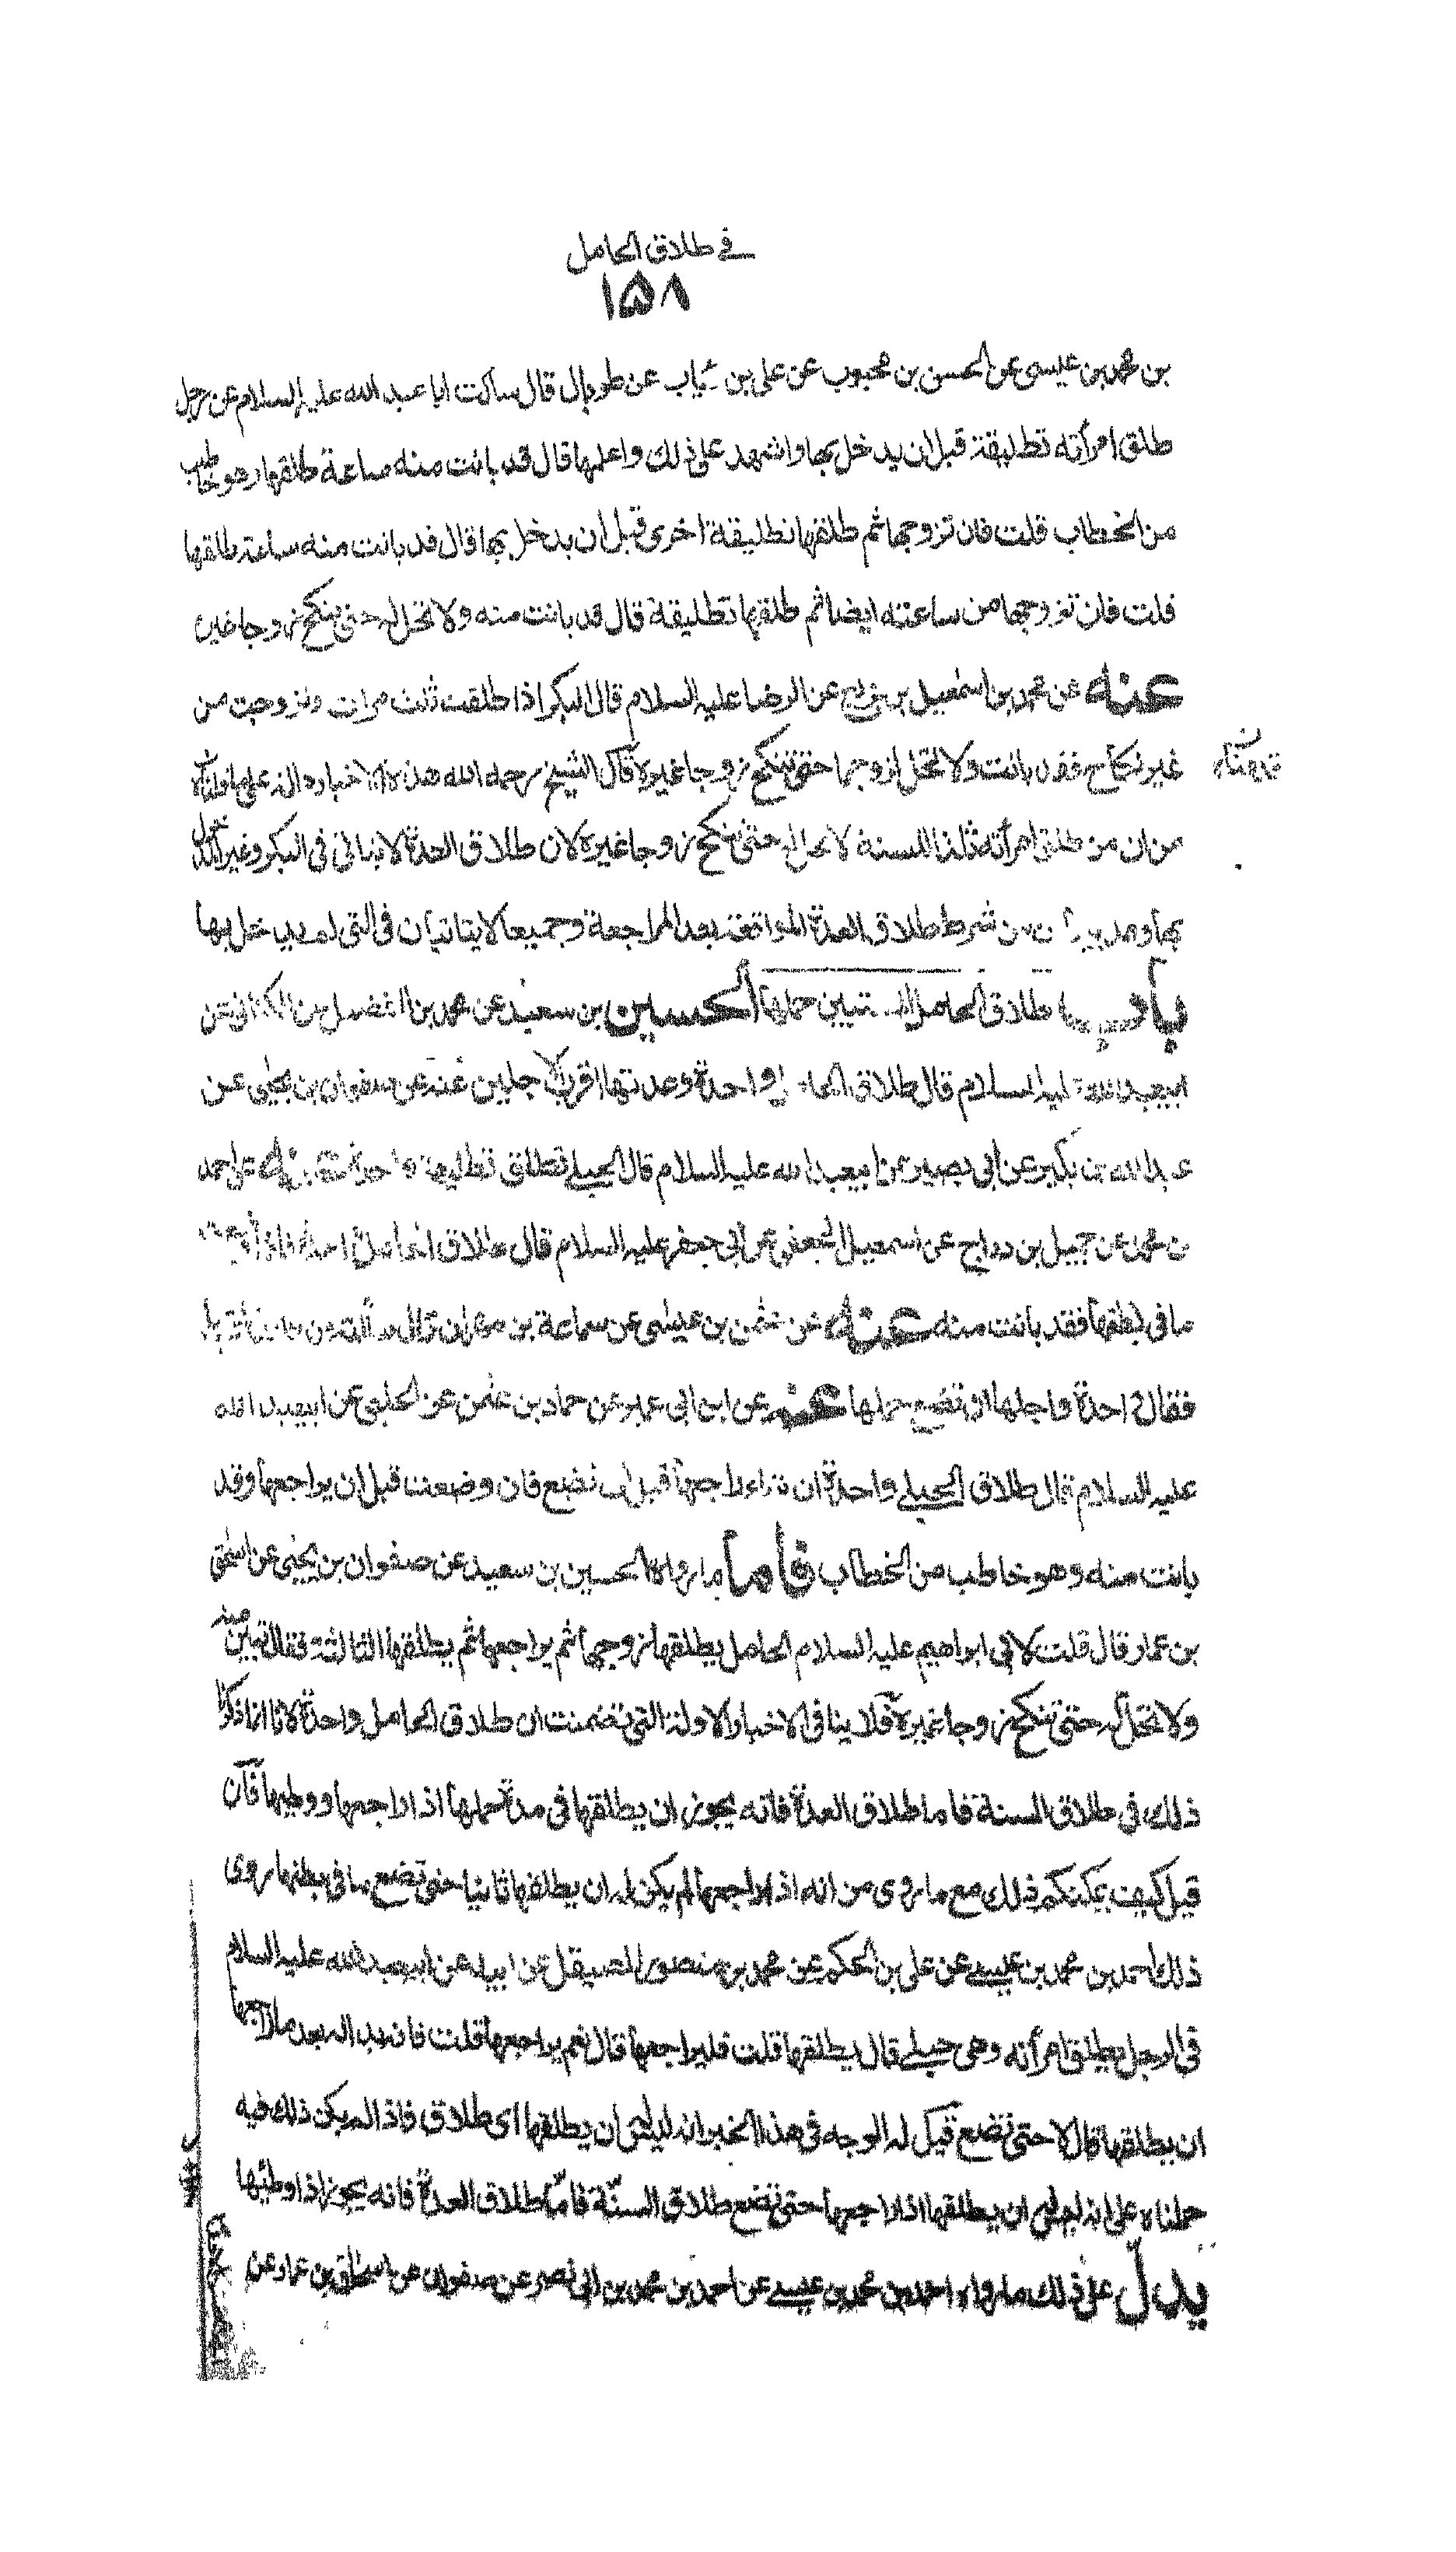 في طلاق الحامل
١٥٨
بن محمد بن عيسى عن الحسن بن محبوب عن علي بن رئاب عن طربال قال سالت ابا عبد الله عليه السلام عن رجل
طلق امرأته تطليقة قبل ان يدخل بها واشهد على ذلك واعلمها قال قد بانت منه ساعة طلقها وهو خاطب
من الخطاب قلت فان تزوجها ثم طلقها تطليقة اخرى قبل ان يدخل بها قال قد بانت منه ساعة طلقها
قلت فان تزوجها من ساعته ايضا ثم طلقها تطليقة قال قد بانت منه ولا تحل له حتى تنكح زوجا غيره
عنه عن محمد بن اسمعيل بن بزيع عن الرضا عليه السلام قال البكر اذا طلقت ثلث مرات وتزوجت من
غير نكاح فقد بانت ولا تحل لزوجها حتى تنكح زوجا غيره قال الشيخ رحمه الله هذه الاخبار دالة على ما
من ان من طلق امرأته ثلثا للسنة لا تحل له حتى تنكح زوجا غيره لان طلاق العدة لا يتاتى في البكر وغير المدخول
بها من شرط طلاق العدة المواقعة بعد المراجعة وجميعا لا يتاتيان في التي لم يدخل بها
باب طلاق الحامل المستبين حملها الحسين بن سعيد عن محمد بن الفضيل عن الكناني عن
ابيعبد الله عليه السلام قال طلاق الحامل واحدة وعدتها اقرب الاجلين عنه عن صفوان بن يحيى عن
عبد الله بن بكير عن ابي بصير عن ابيعبد الله عليه السلام قال الحبلى تطلق تطليقة واحدة عنه عن احمد
بن محمد عن جميل بن دراج عن اسمعيل الجعفي عن ابي جعفر عليه السلام قال طلاق الحامل واحدة فاذا وضعت
ما في بطنها فقد بانت منه عنه عن عثمن بن عيسى عن سماعة بن مهران قال سالته عن طلاق الحبلى
فقال واحدة واجلها ان تضع حملها عنه عن ابن ابي عمير عن حماد بن عثمن عن الحلبي عن ابيعبد الله
عليه السلام قال طلاق الحبلى واحدة ان شاء راجعها قبل ان تضع فان وضعت قبل ان يراجعها وقد
بانت منه وهو خاطب من الخطاب فأما ما رواه الحسين بن سعيد عن صفوان بن يحيى عن اسحق
بن عمار قال قلت لابي ابراهيم عليه السلام الحامل يطلقها زوجها ثم يراجعها ثم يطلقها الثالثة فقال تبين منه
ولا تحل له حتى تنكح زوجا غيره فلا ينافي الاخبار الاولة التي تضمنت ان طلاق الحامل واحدة لانا انما ذكرنا
ذلك في طلاق السنة فاما طلاق العدة فانه يجوز ان يطلقها في مدة حملها اذا راجعها ووطيها فان
قيل كيف يمكنكم ذلك مع ما روى من انه اذا راجعها لم يكن له ان يطلقها ثانيا حتى تضع ما في بطنها روى
ذلك احمد بن محمد بن عيسى عن علي بن الحكم عن محمد بن منصور الصيقل عن ابيه عن ابيعبد الله عليه السلام
في الرجل يطلق امرأته وهي حبلى قال يطلقها قلت فليراجعها قال نعم يراجعها قلت فان بدا له بعد ما راجعها
ان يطلقها قال لا حتى تضع قيل له الوجه في هذا الخبر انه ليس له ان يطلقها اي طلاق فاذا لم يكن ذلك فيه
حملناه على انه ليس له ان يطلقها اذا راجعها حتى تضع طلاق السنة فاما طلاق العدة فانه يجوز اذا وطئها
يدل على ذلك ما رواه احمد بن محمد بن عيسى عن احمد بن محمد بن ابي نصر عن صفوان عن اسحاق بن عمار عن